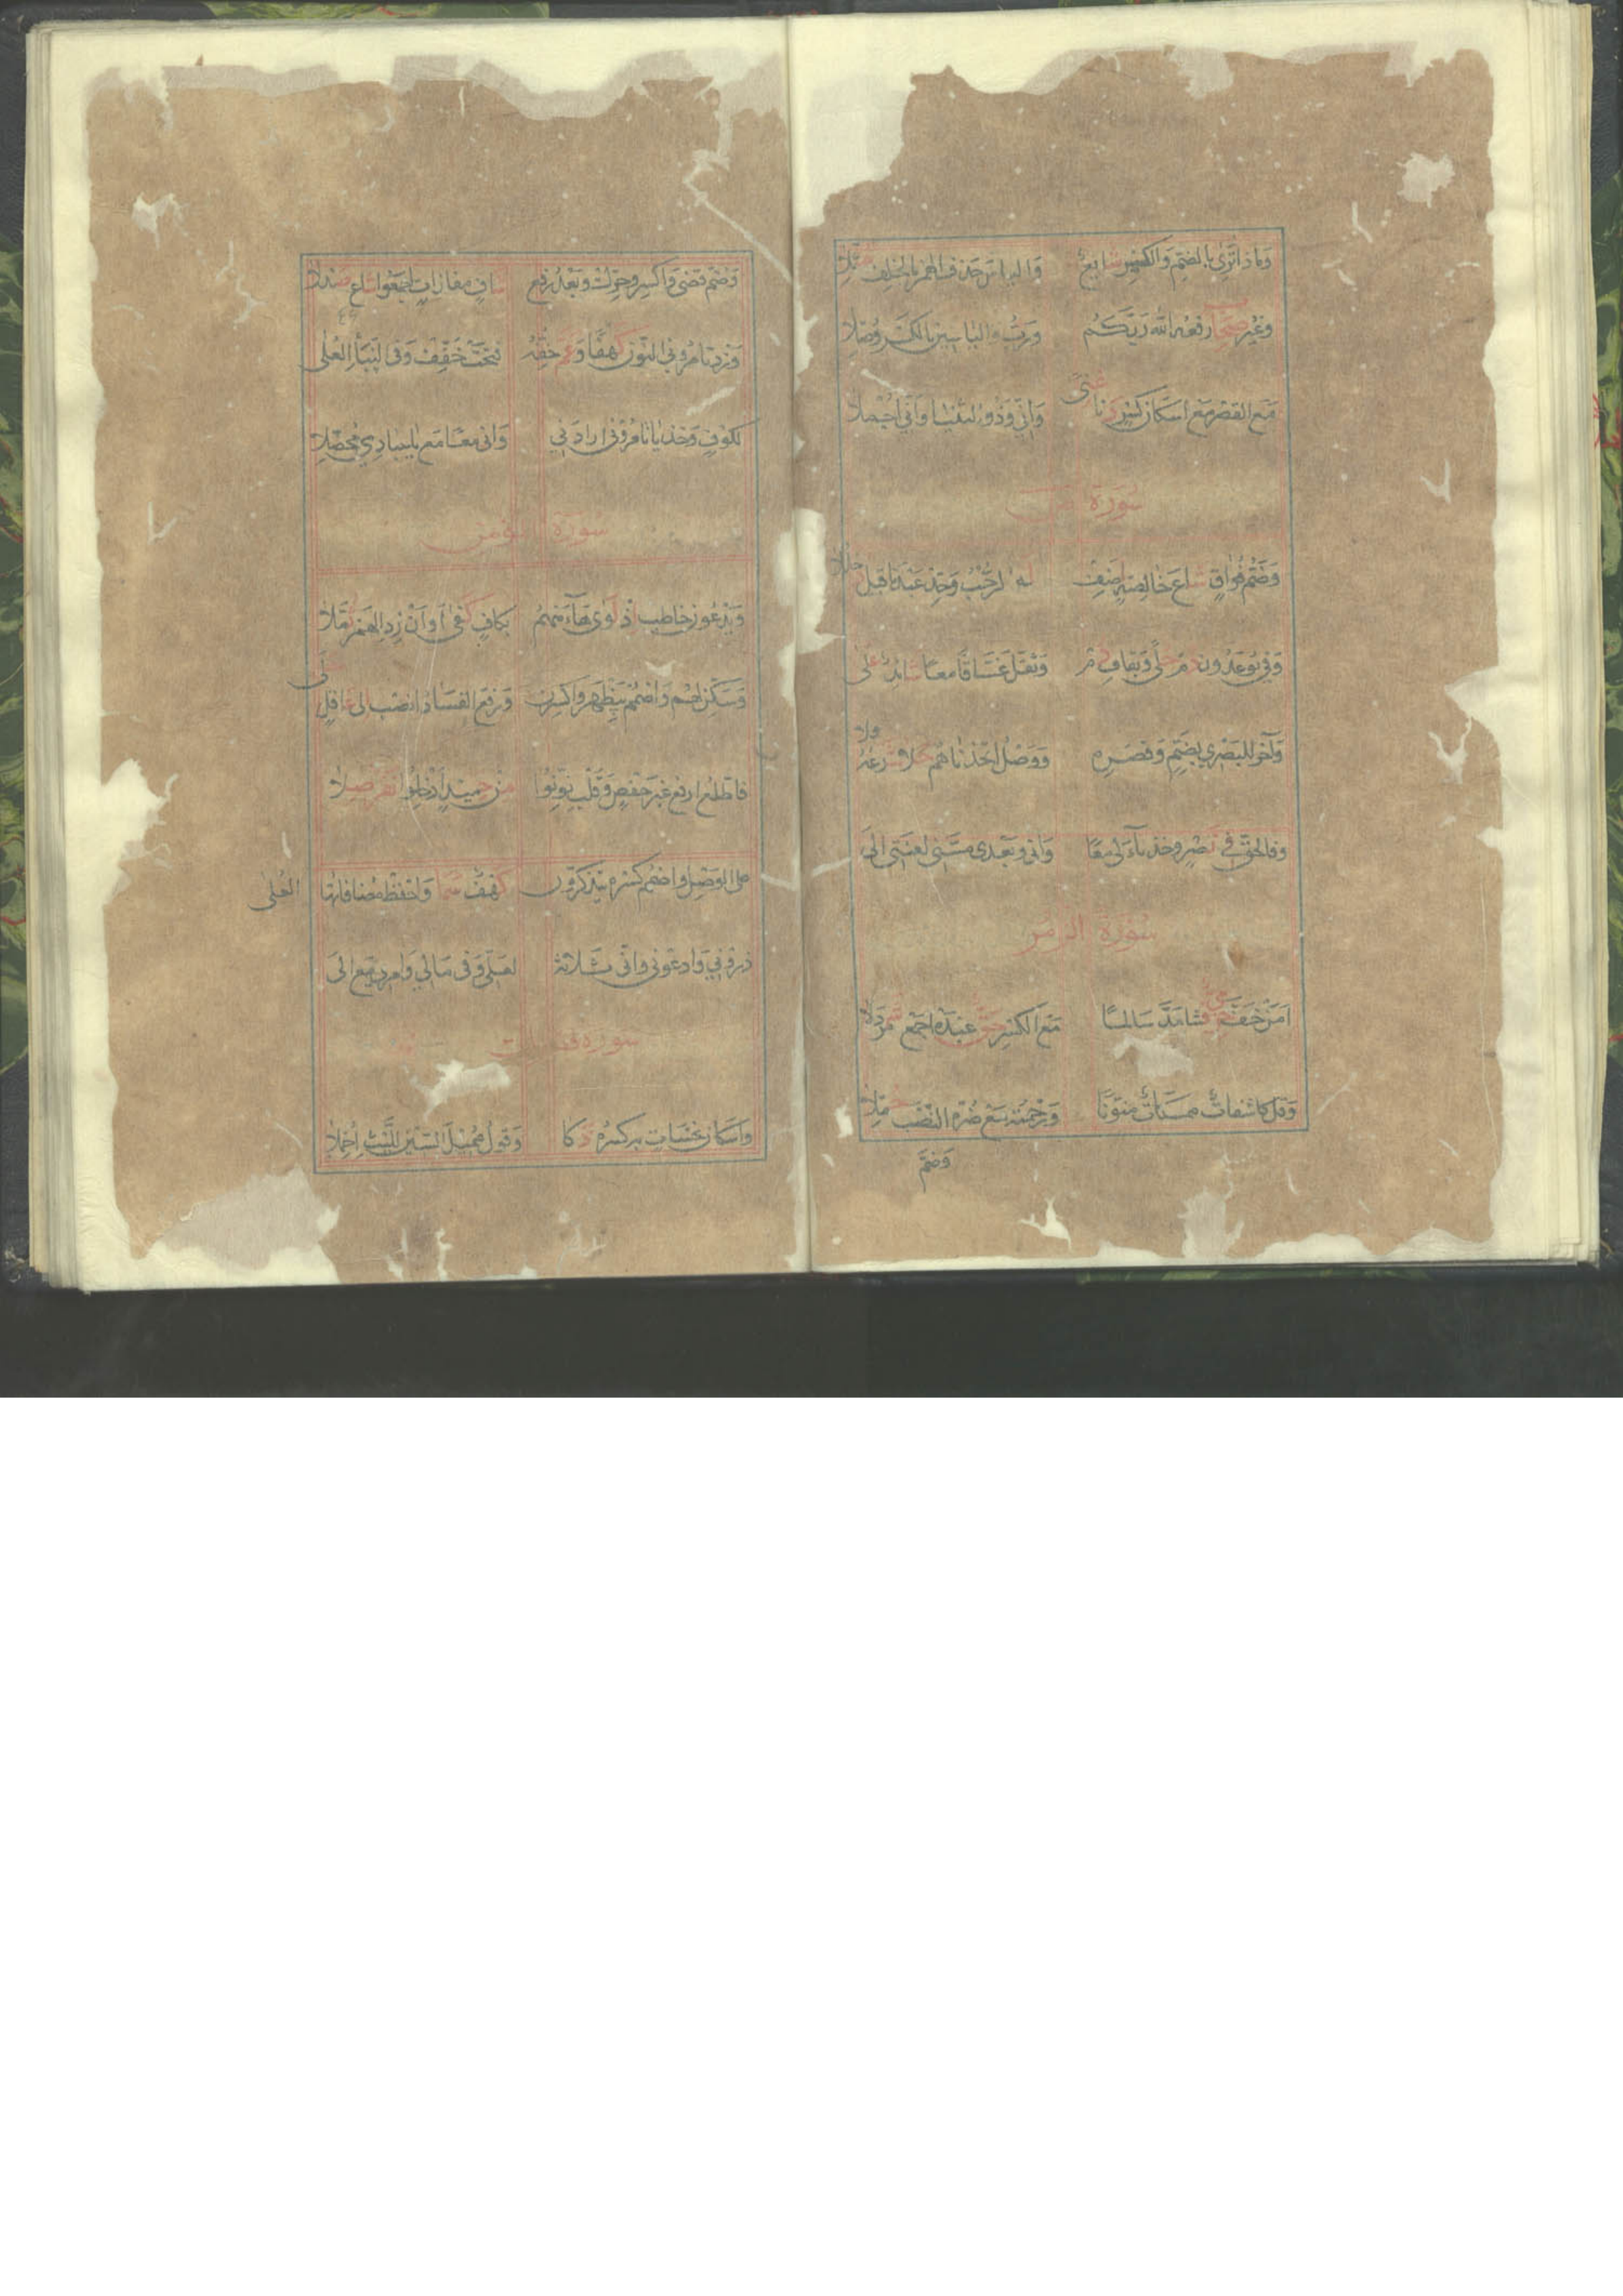 وَمَاذَا تُرِي بِالضَّمِّ وَالْكَسْرِ شَائِعٌ وَالْيَاسَ حَذْفُ الْهَمْزِ بِالْخُلْفِ مُثِّلَا
وَغَيْرُ صِحَابٍ رَفْعُهُ اللّٰهُ رَبُّكُمْ وَرَبُّ وَالْيَاسِينَ بِالْكَسْرِ وُصِّلَا
مَعَ الْقَصْرِ مَعْ اِسْكَانِ كَسْرٍ دَنَا غِنًى وَاِنِّي وَذُو الثُّنْيَا وَاَنِّي اُجْمِلَا
سُورَة ص
وَضَمُّ فُوَاقٍ شَاعَ خَالِصَةٍ اَضِفْ لَهُ الرَّحْبُ وَحِّدْ عَبْدَنَا قَبْلُ دُخْلُلَا
وَفِي يُوعَدُونَ دُمْ حُلًى وَبِقَافِ دُمْ وَثَقَّلَ غَسَّاقًا مَعًا شَائِدٌ عُلَى
وَآخَرُ لِلْبَصْرِي بِضَمٍّ وَقَصْرِهِ وَوَصْلُ اتَّخَذْنَاهُمْ حَلَا شَرْعُهُ وِلَا
وَفَالْحَقُّ فِي نَصْرٍ وَخُذْ يَاءَ لِي مَعًا وَاِنِّي وَبَعْدِي مَسَّنِي لَعْنَتِي اِلَى
سُورَةُ الزُّمَر
اَمَنْ خَفَّ حِرْمِيٌّ فَشَا مَدَّ سَالِمًا مَعَ الْكَسْرِ حَقٌّ عَبْدَهُ اجْمَعْ شَمَرْدَلَا
وَقُلْ كَاشِفَاتٌ مُمْسِكَاتٌ مُنَوِّنًا وَرَحْمَتِهِ مَعْ ضُرِّهِ النَّصْبُ حُمِّلَا
وَضُمَّ
وَضُمَّ قَضَى وَاكْسِرْ وَحَرِّكْ وَبَعْدُ رَفْعُ شَافٍ مَفَازَاتٍ اجْمَعُوا شَاعَ صَنْدَلَا
وَزِدْ تَامُرُونِي النُّونَ كَهْفًا وَعَمَّ خِفُّهُ فُتِّحَتْ خَفِّفْ وَفِي النَّبَإِ الْعُلَى
لِكُوفٍ وَخُذْ يَا تَامُرُونِي اَرَادَنِي وَاِنِّي مَعًا مَعْ يَا عِبَادِي مُحَصِّلَا
سُورَةُ الْمُؤْمِن
وَيَدْعُونَ خَاطِبْ اِذْ لَوَى هَاءُ مِنْهُمُ بِكَافٍ كَفَى اَوْ اَنْ زِدِ الْهَمْزَ ثُمَّلَا
وَسَكِّنْ لَهُمْ وَاضْمُمْ بِيَظْهَرَ وَاكْسِرَنْ وَرَفْعَ الْفَسَادَ انْصِبْ اِلَى عَاقِلٍ حَلَى
فَاَطَّلِعَ ارْفَعْ غَيْرَ حَفْصٍ وَقَلْبِ نَوِّنُوا مِنْ حَمِيدٍ اَدْخِلُوا نَفَرٌ صِلَا
عَلَى الْوَصْلِ وَاضْمُمْ كَسْرَهُ يَتَذَكَّرُونَ كَهْفٌ سَمَا وَاحْفَظْ مُضَافَاتِهَا الْعُلَى
ذَرُونِي وَادْعُونِي وَاِنِّي ثَلَاثَةٌ لَعَلِّي وَفِي مَالِي وَاَمْرِيَ مَعْ اِلَى
سُورَة فصلت
وَاِسْكَانُ نَحْسَاتٍ بِهِ كَسْرُهُ ذَكَا وَقَوْلُ مُمِيلِ السِّينِ لِلَّيْثِ اُخْمِلَا